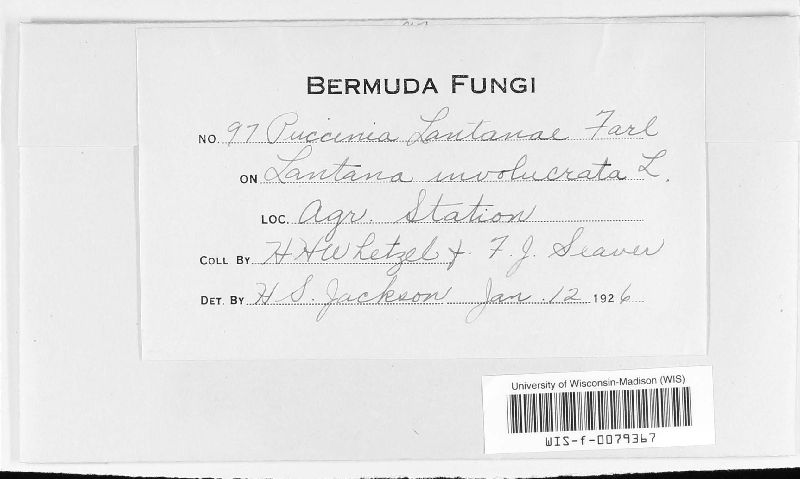 BERMUDA FUNGI
NO. 97 Puccinia Lantanae Farl
ON Lantana involucrata L.
LOC. Agr. Station
COLL BY H H Whetzel & F. J. Seaver
DET. BY H S. Jackson Jan. 12 1926
University of Wisconsin-Madison (WIS)
WIS-f-0079367